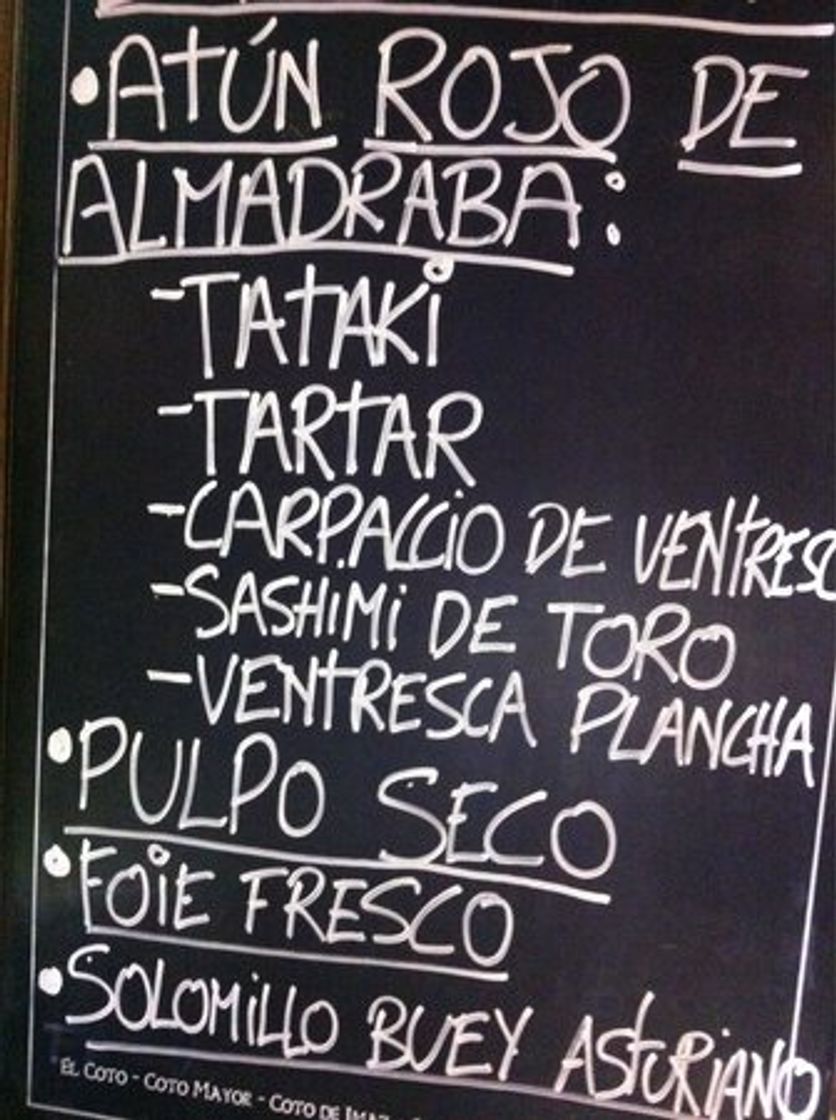 • ATÚN ROJO DE
ALMADRABA:
- TATAKI
- TARTAR
- CARPACCIO DE VENTRESC
- SASHIMI DE TORO
- VENTRESCA PLANCHA
• PULPO SECO
• FOIE FRESCO
• SOLOMILLO BUEY ASTURIANO
EL COTO - COTO MAYOR - COTO DE IMAZ